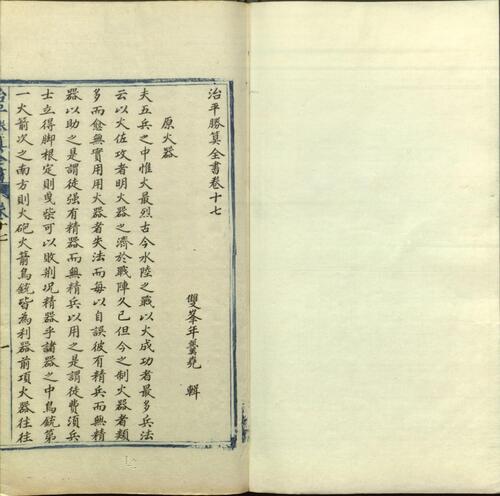 治平勝算全書卷十七
雙峯年羹堯 輯
原火器
夫五兵之中惟火最烈古今水陸之戰以火成功者最多兵法
云以火佐攻者明火器之濟於戰陣久已但今之制火器者類
多而愈無實用用火器者失法而每以自誤彼有精兵而無精
器以助之是謂徒强有精器而無精兵以用之是謂徒費須兵
士立得脚根定則曳柴可以敗荆况精器乎諸器之中鳥銃第
一火箭次之南方則火砲火箭鳥銃皆為利器前項火器往往
治平勝算全書 卷十七 一